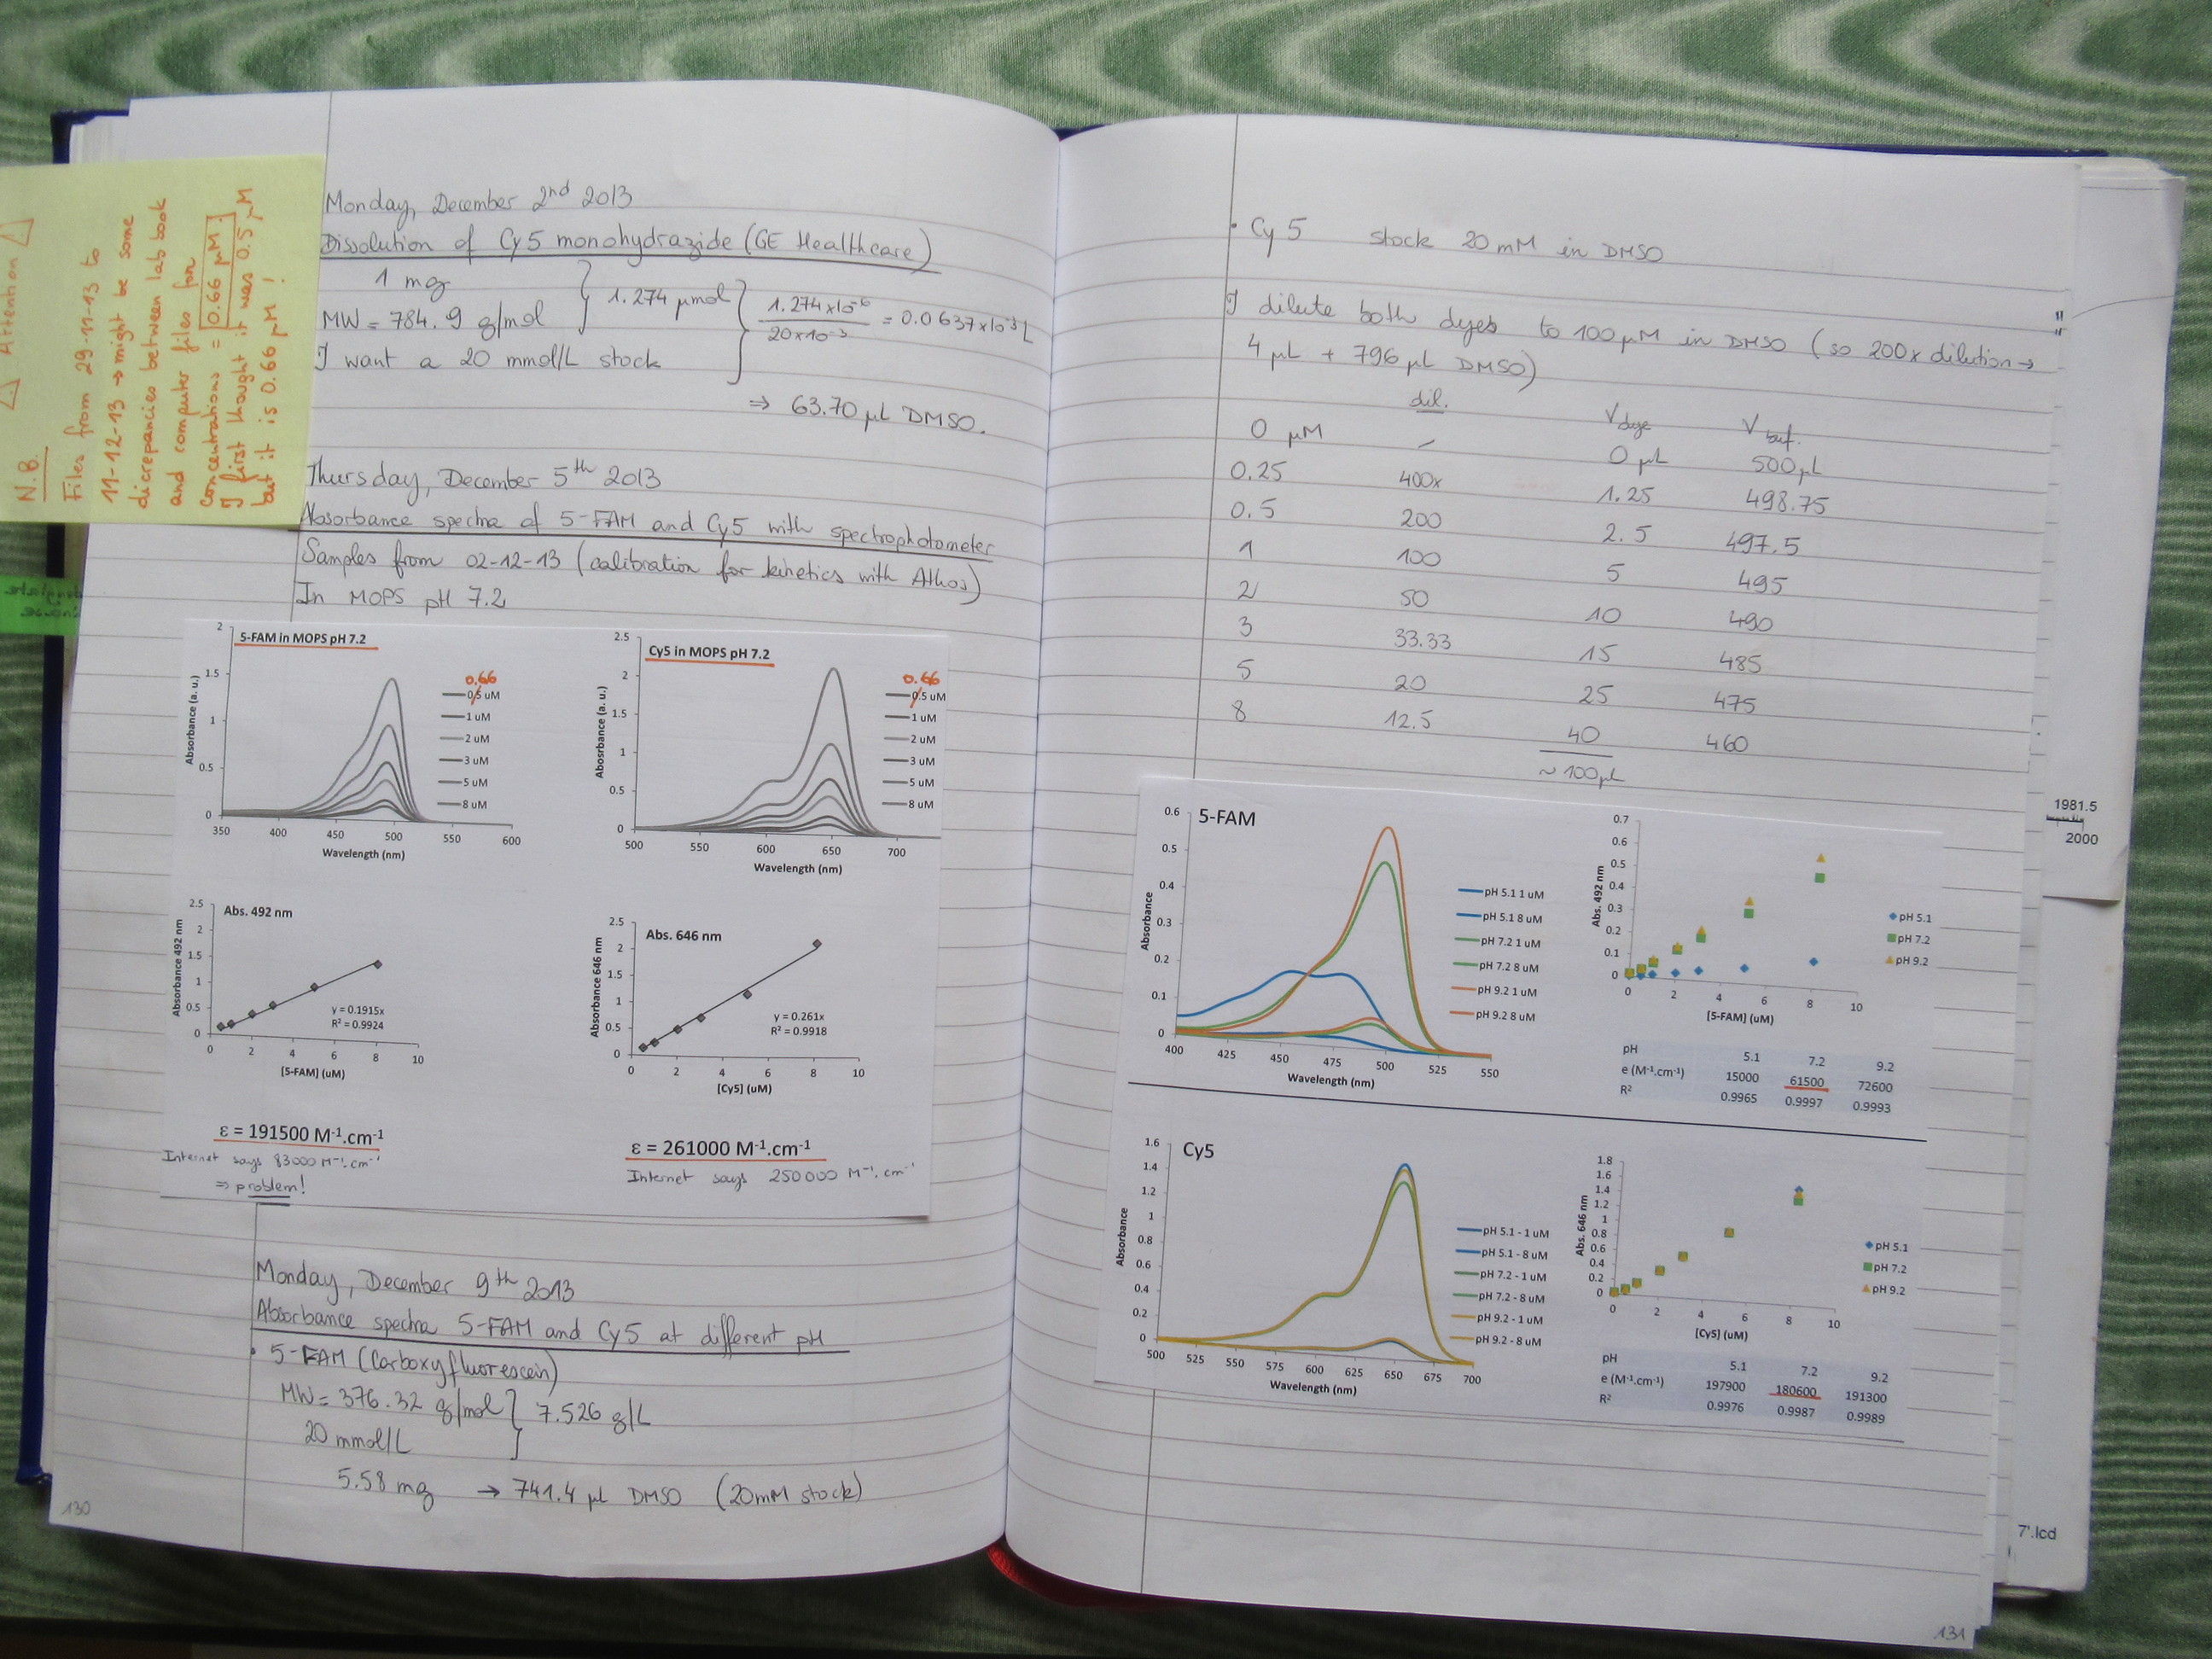 Attention
N.B.
Files from 29-11-13 to
11-12-13 → might be some
dicrepancies between lab book
and computer files for
concentrations = 0.66 µM.
I first thought it was 0.5 µM
but it is 0.66 µM !
Monday, December 2nd 2013
Dissolution of Cy5 monohydrazide (GE Healthcare)
1 mg
MW = 784.9 g/mol
1.274 µmol
1.274 x10-6
20 x10-3
= 0.0637 x10-3 L
I want a 20 mmol/L stock
⇒ 63.70 µL DMSO.
Thursday, December 5th 2013
Absorbance spectra of 5-FAM and Cy5 with spectrophotometer
Samples from 02-12-13 (calibration for kinetics with Athos)
In MOPS pH 7.2
5-FAM in MOPS pH 7.2
Absorbance (a. u.)
2
1.5
1
0.5
0
350 400 450 500 550 600
Wavelength (nm)
0.66
0.5 uM
1 uM
2 uM
3 uM
5 uM
8 uM
Cy5 in MOPS pH 7.2
Abosrbance (a. u.)
2.5
2
1.5
1
0.5
0
500 550 600 650 700
Wavelength (nm)
0.66
0.5 uM
1 uM
2 uM
3 uM
5 uM
8 uM
Abs. 492 nm
Absorbance 492 nm
2.5
2
1.5
1
0.5
0
y = 0.1915x
R² = 0.9924
0 2 4 6 8 10
[5-FAM] (uM)
Abs. 646 nm
Absorbance 646 nm
2.5
2
1.5
1
0.5
0
y = 0.261x
R² = 0.9918
0 2 4 6 8 10
[Cy5] (uM)
ε = 191500 M-1.cm-1
Internet says 83000 M-1.cm-1
⇒ problem!
ε = 261000 M-1.cm-1
Internet says 250000 M-1.cm-1
Monday, December 9th 2013
Absorbance spectra 5-FAM and Cy5 at different pH
• 5-FAM (Carboxyfluorescein)
MW = 376.32 g/mol
20 mmol/L
7.526 g/L
5.58 mg → 741.4 µL DMSO (20mM stock)
130
• Cy5 stock 20 mM in DMSO
I dilute both dyes to 100 µM in DMSO (so 200x dilution →
4 µL + 796 µL DMSO)
dil. V dye V buf.
0 µM – 0 µL 500 µL
0.25 400x 1.25 498.75
0.5 200 2.5 497.5
1 100 5 495
2 50 10 490
3 33.33 15 485
5 20 25 475
8 12.5 40 460
~ 100 µL
5-FAM
Absorbance
0.6
0.5
0.4
0.3
0.2
0.1
0
400 425 450 475 500 525 550
Wavelength (nm)
pH 5.1 1 uM
pH 5.1 8 uM
pH 7.2 1 uM
pH 7.2 8 uM
pH 9.2 1 uM
pH 9.2 8 uM
Abs. 492 nm
0.7
0.6
0.5
0.4
0.3
0.2
0.1
0
0 2 4 6 8 10
[5-FAM] (uM)
pH 5.1
pH 7.2
pH 9.2
pH 5.1 7.2 9.2
e (M-1.cm-1) 15000 61500 72600
R² 0.9965 0.9997 0.9993
Cy5
Absorbance
1.6
1.4
1.2
1
0.8
0.6
0.4
0.2
0
500 525 550 575 600 625 650 675 700
Wavelength (nm)
pH 5.1 - 1 uM
pH 5.1 - 8 uM
pH 7.2 - 1 uM
pH 7.2 - 8 uM
pH 9.2 - 1 uM
pH 9.2 - 8 uM
Abs. 646 nm
1.8
1.6
1.4
1.2
1
0.8
0.6
0.4
0.2
0
0 2 4 6 8 10
[Cy5] (uM)
pH 5.1
pH 7.2
pH 9.2
pH 5.1 7.2 9.2
e (M-1.cm-1) 197900 180600 191300
R² 0.9976 0.9987 0.9989
131
1981.5
2000
7'.lcd